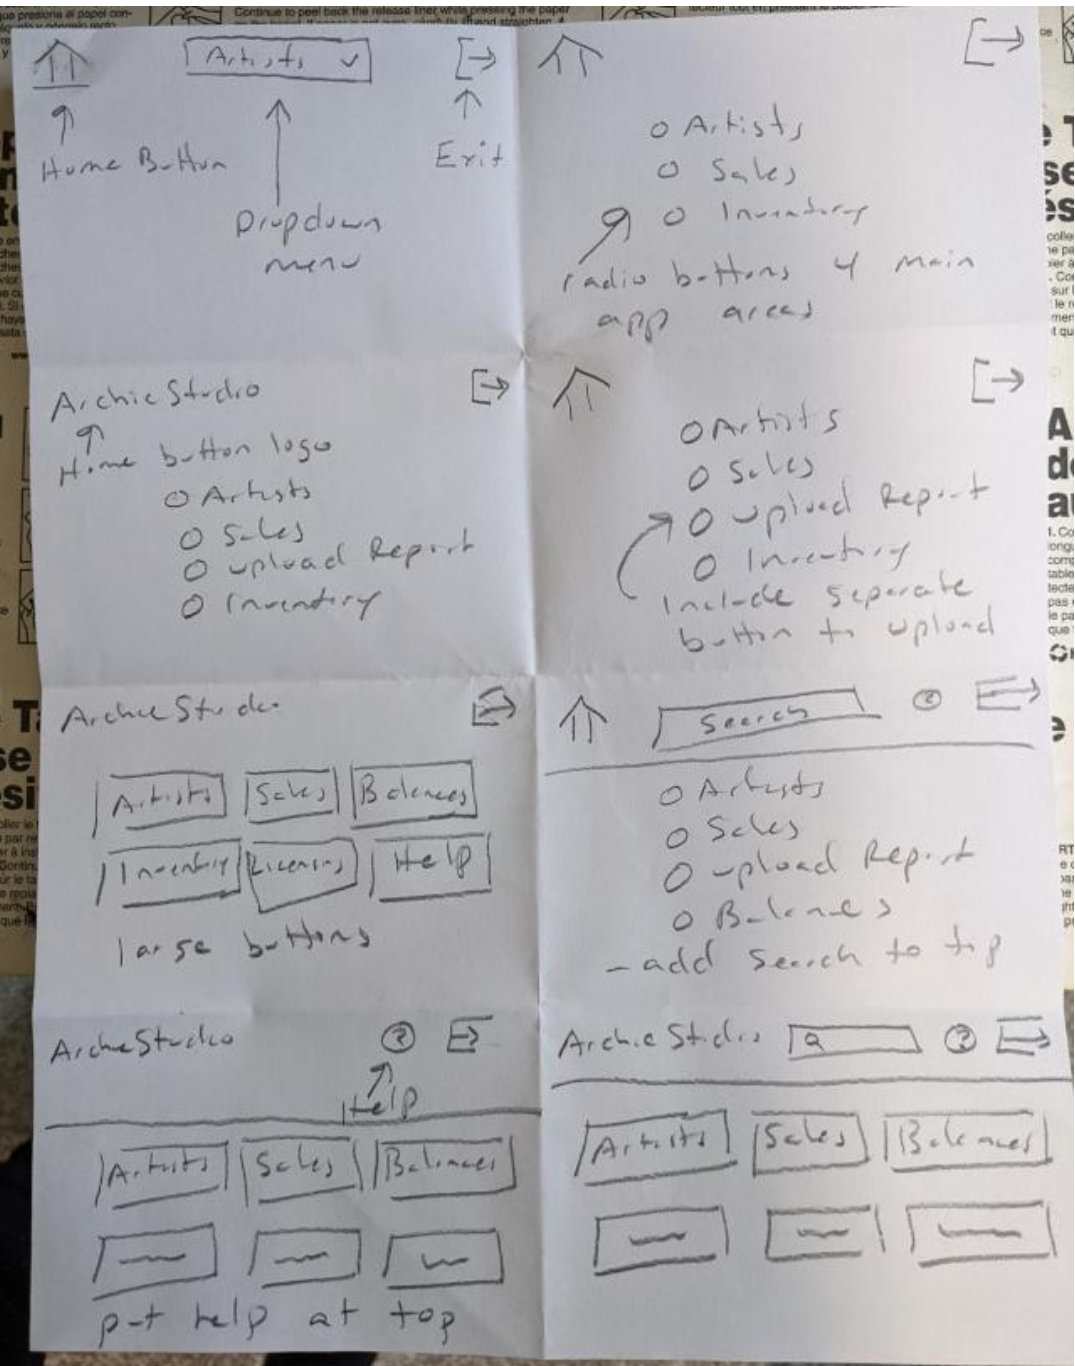 Continue to peel back the release liner while pressing the paper
Artists
Home Button
Exit
Dropdown
menu
Artists
Sales
Inventory
radio buttons of main
app areas
ArchieStudio
Home button logo
Artists
Sales
Upload Report
Inventory
Artists
Sales
Upload Report
Inventory
Include separate
button to upload
ArchieStudio
Artists
Sales
Balances
Inventory
Licensing
Help
large buttons
Search
?
Artists
Sales
Upload Report
Balances
- add search to top
ArchieStudio
?
Help
Artists
Sales
Balances
put help at top
Archie Studio
?
Artists
Sales
Balances